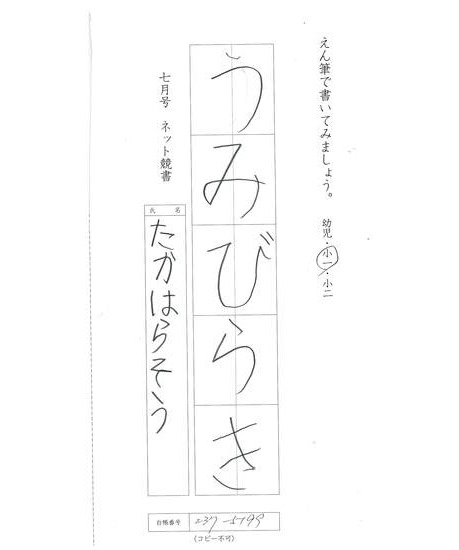 えん筆で書いてみましょう。 幼児・小一・小二
うみびらき
七月号 ネット競書
氏名
たかはらそう
台帳番号 237-5799
(コピー不可)